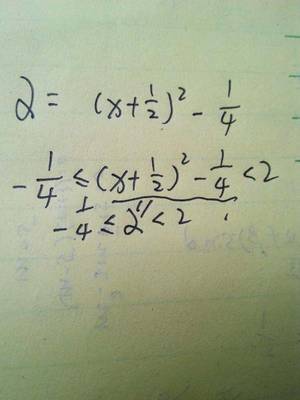 2 = (x+1/2)² - 1/4
-1/4 ≤ (x+1/2)² - 1/4 < 2
-1/4 ≤ 2 < 2